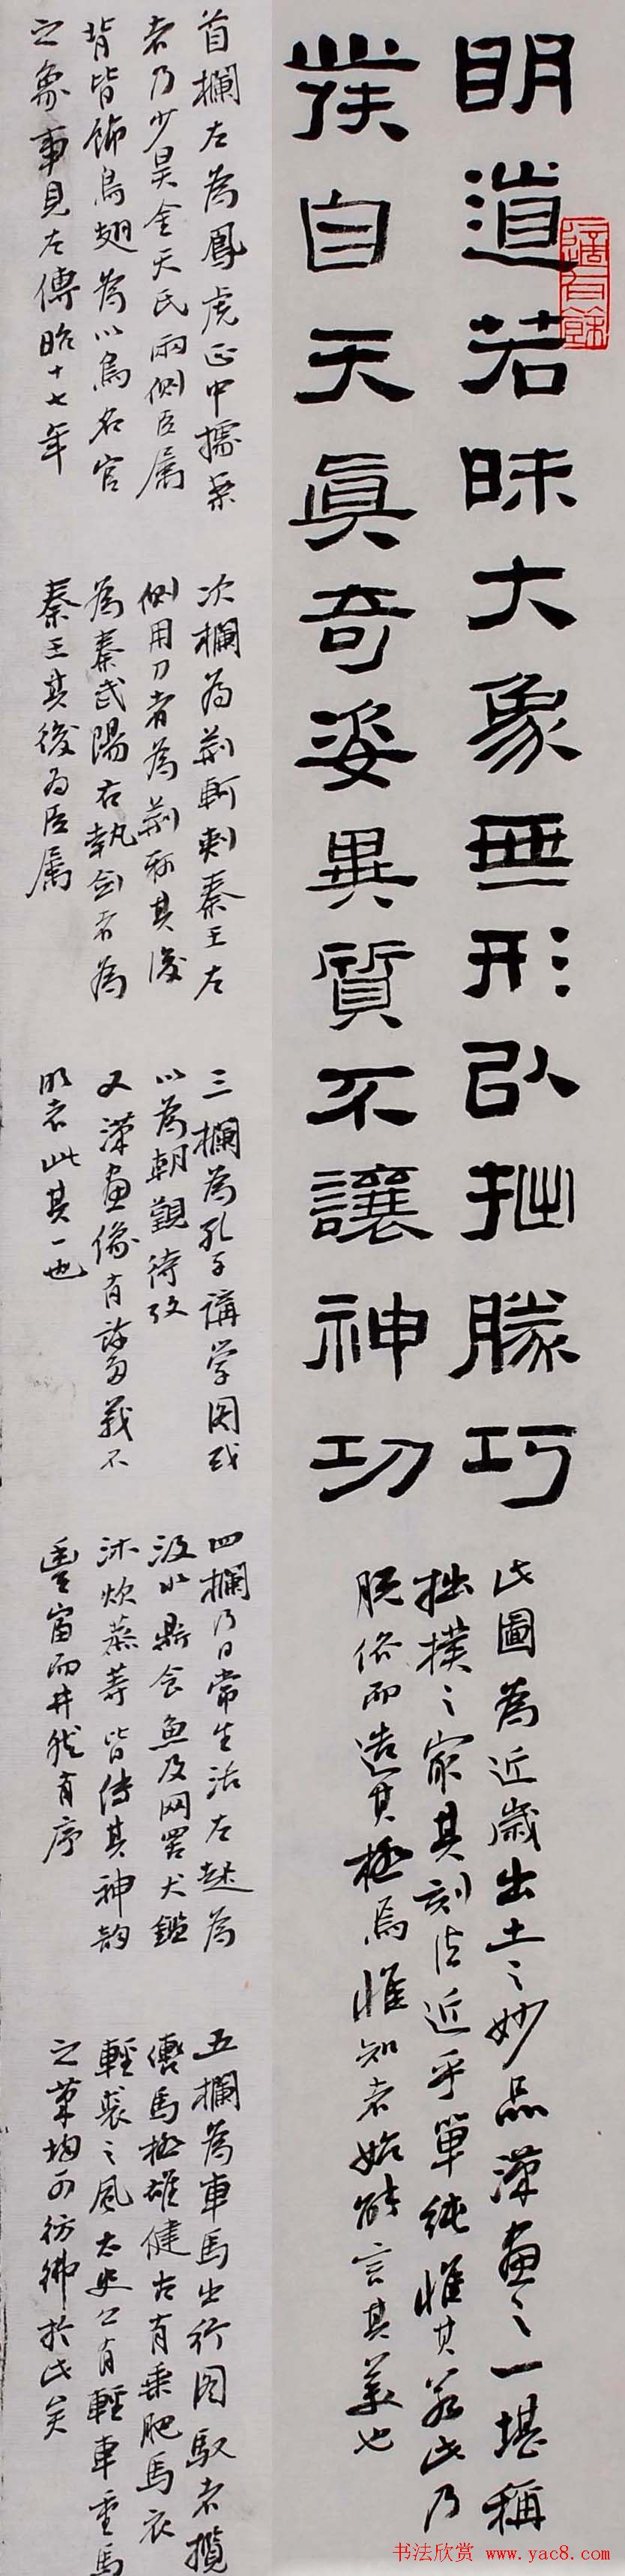 明道若昧大象無形以拙勝巧
發自天真奇姿異質不讓神功
適有餘
此圖為近歲出土之妙品漢畫之一堪稱
拙樸之最其刻法近乎單純惟其若此乃
脫俗而造其極焉惟知者始能言其美也
首欄左為鳳虎正中據案
者乃少昊金天氏兩側臣屬
背皆飾鳥翅為以鳥名官
之象事見左傳昭十七年
次欄為荊軻刺秦王左
側用刀者為荊軻其後
為秦武陽右執劍者為
秦王其後為臣屬
三欄為孔子講學圖或
以為朝觀待攷
又漢畫像有歧義不
明者此其一也
四欄乃日常生活左起為
汲水鼎食魚及网罟犬鑑
沐炊蒸等皆傳其神韵
豐富而井然有序
五欄為車馬出行圖馭者攬
轡馬極雄健古有乘肥馬衣
輕裘之風太史公有輕車重馬
之筆均可彷彿於此矣
书法欣赏 www.yac8.com